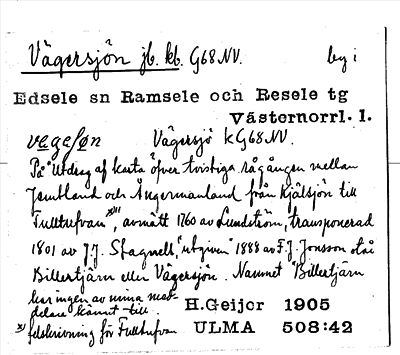 Vägersjön jb. kb. G68NV. by i
Edsele sn Ramsele och Resele tg
Västernorrl. l.
vägesøn Vägersjö kG68NV.
På "Utdrag af karta öfver tvistiga rågången mellan
Jemtland och Ångermanland från Kjälsjön till
Tulltufvan" x), avmätt 1760 av Lundström, transponerad
1801 av J.J. Stagnell, "utgiven" 1888 av F.J. Jonsson står
Billertjärn eller Vägersjön. Namnet "Billertjärn
har ingen av mina med-
delare kännt till.
H.Geijer 1905
x) felskrivning för Fulltufvan
ULMA 508:42